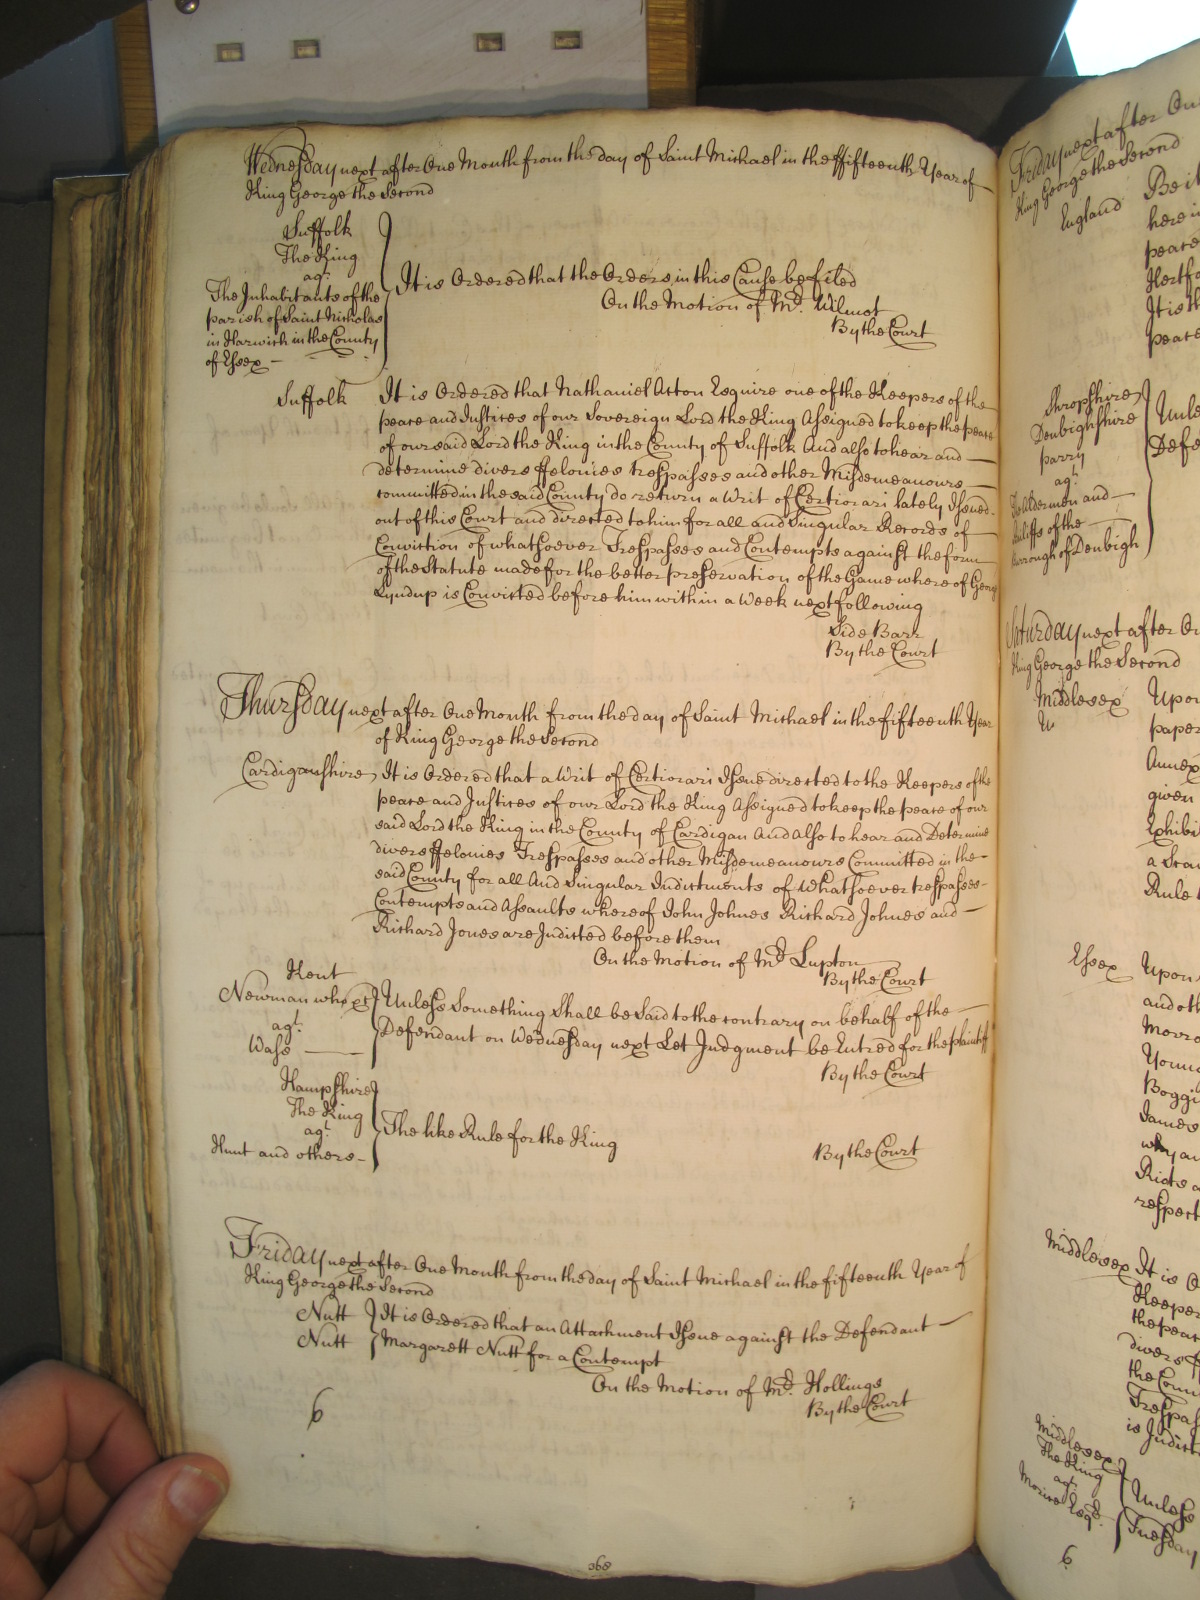 Wednesday next after One Month from the day of Saint Michael in the ffifteenth Year of
King George the Second
Suffolk
The King
agt.
The Inhabitants of the
parish of Saint Nicholas
in Harwich in the County
of Essex
It is Ordered that the Orders in this Cause be filed
On the Motion of Mr. Wilmot
By the Court
Suffolk
It is Ordered that Nathaniel Acton Esquire one of the Keepers of the
peace and Justices of our Sovereign Lord the King Assigned to keep the peace
of our said Lord the King in the County of Suffolk And also to hear and
determine divers ffelonies trespasses and other Misdemeanours
committed in the said County do return a Writ of Certiorari lately Issued
out of this Court and directed to him for all and Singular Records of
Conviction of whatsoever Trespasses and Contempts against the form
of the Statute made for the better preservation of the Game where of George
Lyndup is Convicted before him within a Week next following
Side Barr
By the Court
Thursday next after One Month from the day of Saint Michael in the fifteenth Year
of King George the Second
Cardiganshire
It is Ordered that a Writ of Certiorari Issue directed to the Keepers of the
peace and Justices of our Lord the King Assigned to keep the peace of our
said Lord the King in the County of Cardigan And Also to hear and Determine
divers ffelonies Trespasses and other Misdemeanours Committed in the
said County for all And Singular Indictments of whatsoever trespasses
Contempts and Assaults whereof John Johnes Richard Johnes and
Richard Jones are Indicted before them
On the Motion of Mr. Lupton
By the Court
Kent
Newman who &ct
agt.
Wase
Unless Something Shall be Said to the contrary on behalf of the
Defendant on Wednesday next Let Judgment be Entred for the plaintiff
By the Court
Hampshire
The King
agt.
Hunt and others
The like Rule for the King
By the Court
Friday next after One Month from the day of Saint Michael in the fifteenth Year of
King George the Second
Nutt
Nutt
It is Ordered that an Attachment Issue against the Defendant
Margarett Nutt for a Contempt
On the Motion of Mr. Hollings
By the Court
6
368
Friday next after
King George the Second
England
Be it
here
peace
It is th
peace
Shropshire
Denbighshire
parry
agt.
Aldermen and
Bailiffs of the
Borrough of Denbigh
Saturday next after
King George the Second
Middlesex
Upon
paper
Annex
given
Exhibi
Rule
Essex
Upon
and oth
Morro
Young
Boggi
James
why an
Riots a
respect
Middlesex
It is
Keeper
the peace
divers
the Coun
Trespas
is Indict
Middlesex
The King
agt.
Unless
Tuesday
6